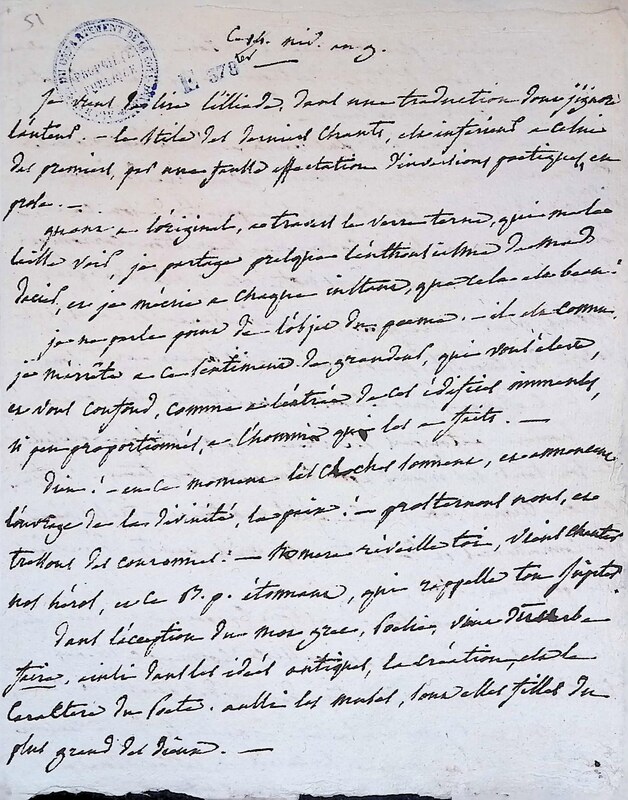 51
E 378
ter
niv. an 9.
je viens de lire l'illiade, dans une traduction dont j'ignore
l'auteur. – le stile des derniers chants, est inférieur a celui
des premiers, par une fausse affectation d'inversions poetiques, en
prose. –
quant a l'original, a travers le verre terne, qui me le
laisse voir, je partage presque l'enthousiasme de mad.
dacier, et je m'écrie a chaque instant, que cela est beau!
je ne parle point de l'objet du poeme. – il est connu.
je m'arrête a ce sentiment de grandeur, qui vous éleve,
et vous confond, comme a l'entrée de ces édifices immenses,
si peu proportionnés, a l'homme qui les a faits. –
dieu! – en ce moment les cloches sonnent, et annoncent
l'ouvrage de la divinité, la paix! – prosternons nous, et
tressons des couronnes! – homere réveille toi, viens chanter
nos héros, et ce étonnant, qui rappelle ton Jupiter
dans l'acception du mot grec, Poesie, vient du verbe
faire, ainsi dans les idées antiques, la création, est le
caractere du Poete. aussi les muses, sont elles filles du
plus grand des dieux. –